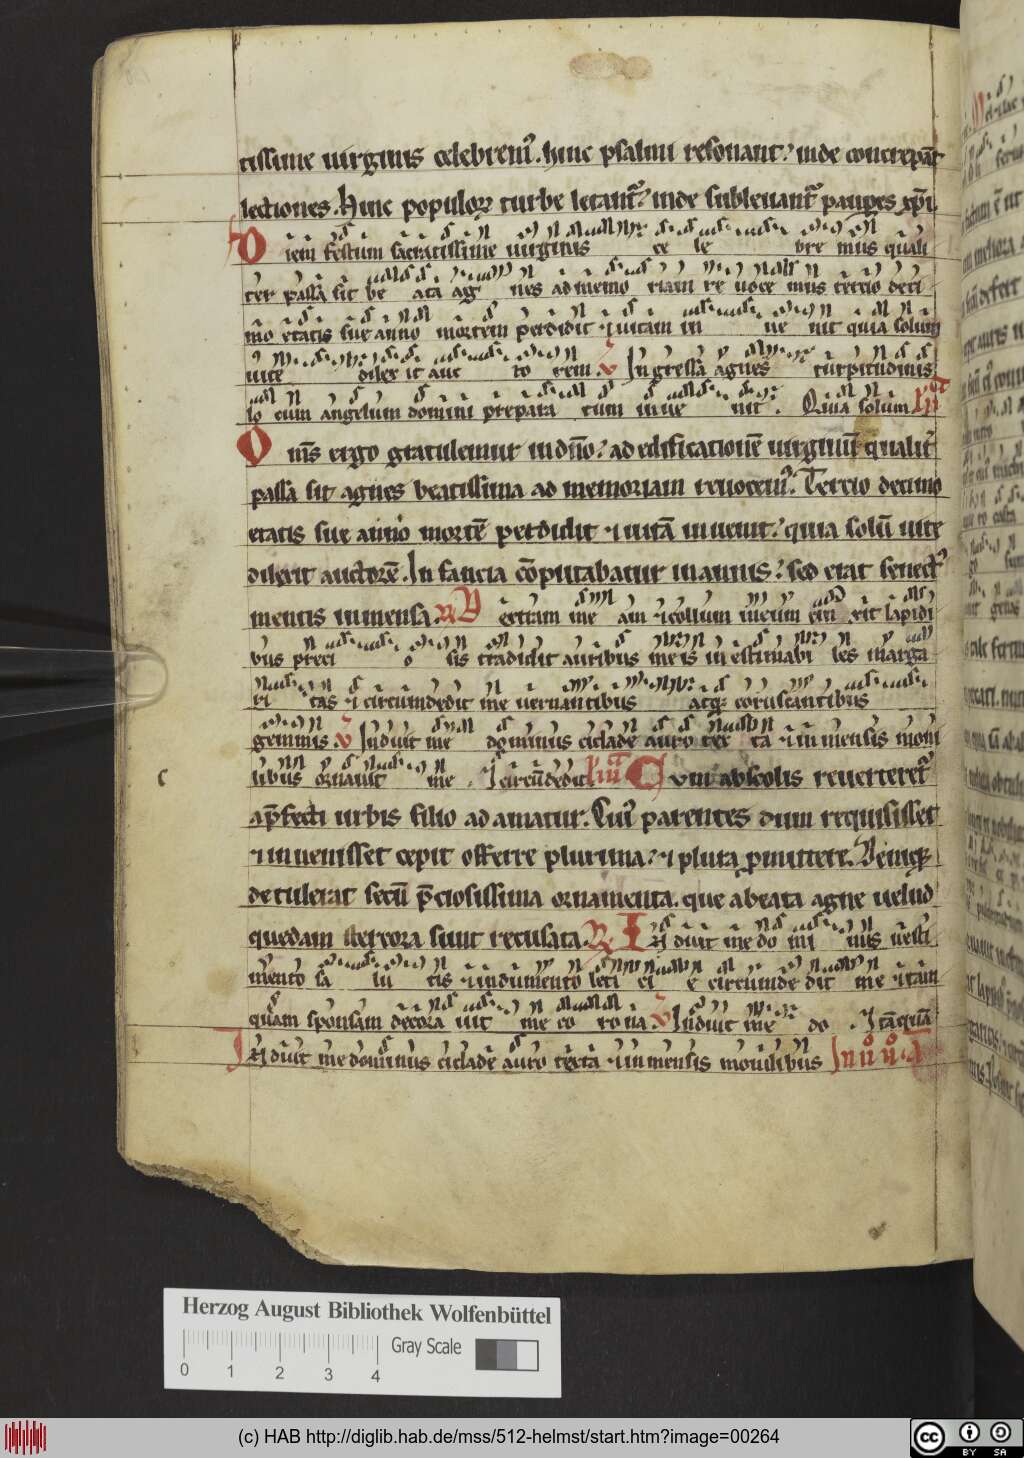 tissime uirginis celebrem9. hinc psalmi resonant. inde concrepāt
lectiones. Hinc populoꝝ turbe letant᷑. inde subleuant᷑ pauꝑes xp̄i.
Diem festum sacratissime uirginis ce le bre mus quali
ter passa sit be ata ag nes ad memo riam re uoce mus tercio deci
mo etatis sue anno mortem perdidit ⁊ uitam in ue nit quia solum
uite dilex it auc to rem ℣ Ingressa agnes turpitudinis
lo cum angelum domini prepara tum in ue nit. Quia solum
Om̄s ergo gratulemur in dn̄o. ad edificationē uirginū qualit᷑
passa sit agnes beatissima ad memoriam reuocem9. Tercio decimo
etatis sue anno mortē perdidit ⁊ uitā inuenit. quia solū uite
dilexit auctorē. In fancia cōputabatur in annis. sed erat senect9
mentis inmensa. ℟ Dextram me am ⁊ collum meum cin xit lapidi
bus preci o sis tradidit auribus me is in estimabi les marga
ri tas ⁊ circumdedit me uernantibus atq; coruscantibus
gemmis ℣ Induit me dominus ciclade auro tex ta ⁊ in mensis moni
libus ornauit me. ⁊ circūdedit Cum abscolis reuerteret᷑
c
a p̄fecti urbis filio ad amatur. Cui9 parentes dum requisisset
⁊ inuenisset cepit offerre plurima. ⁊ plura ꝓmittere. Deniq;
detulerat secū p̄ciosissima ornamenta. que abeata agne uelud
quedam stercora sunt recusata. ℟ In duit me do mi nus uesti
mento sa lu tis ⁊ indumento leti ci e circumde dit me ⁊ tam
quam sponsam decora uit me co ro na ℣ Induit me do . ⁊ tāquā
Induit me dominus ciclade auro texta ⁊ in mensis monilibus
Herzog August Bibliothek Wolfenbüttel
Gray Scale
0 1 2 3 4
(c) HAB http://diglib.hab.de/mss/512-helmst/start.htm?image=00264
cc BY SA